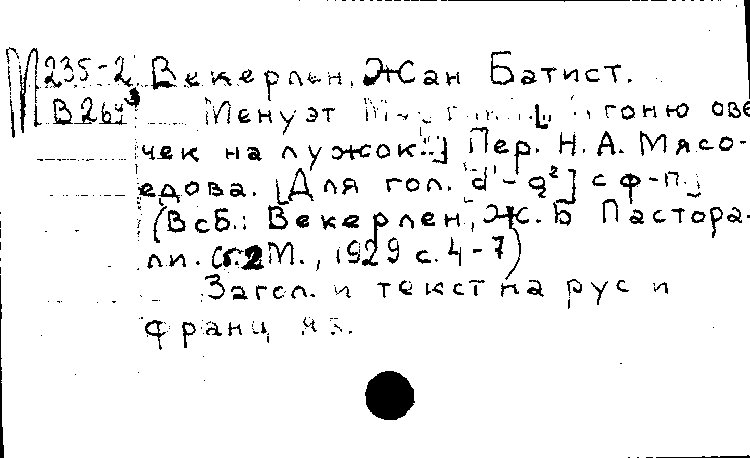 М 235-2 Векерлен, Жан Батист.
В 264 Менуэт гоню ове
чек на лужок..] Пер. Н. А. Мясо-
едова. [Для гол. d¹-g²] с ф-п.
(В сб.: Векерлен, Ж. Б Пастора-
ли. М., 1929 с. 4-7)
Загол. и текст на рус и
франц яз.